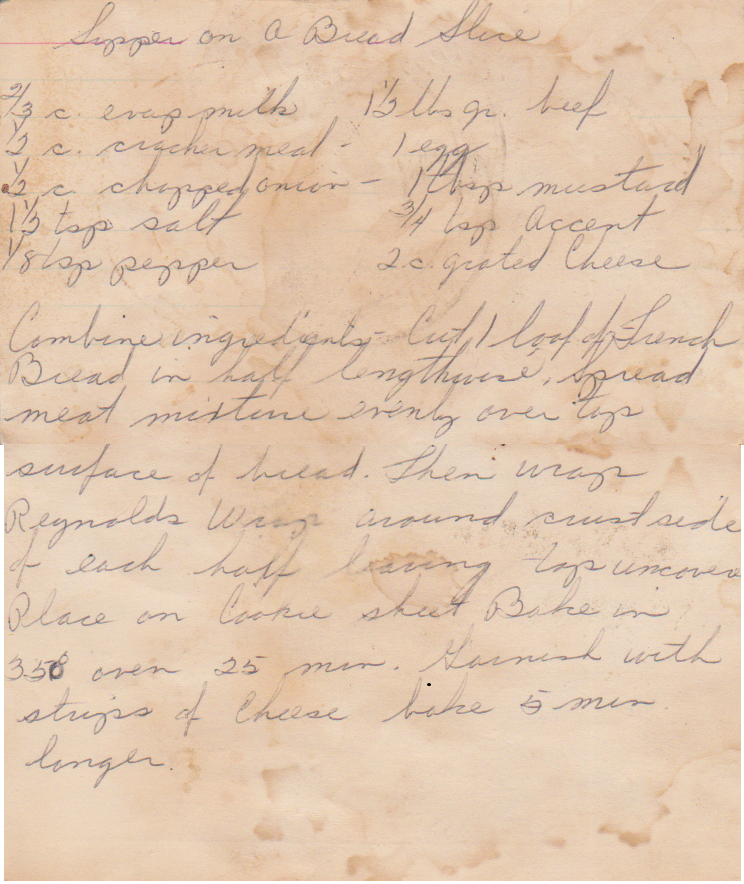 Supper on A Bread Slice
2/3 c. evap milk 1 1/2 lbs gr. beef
1/2 c. cracker meal - 1 egg
1/2 c. chopped onion - 1 tbsp mustard
1 1/2 tsp salt 3/4 tsp Accent
1/8 tsp pepper 2 c. grated Cheese
Combine ingredients - Cut 1 loaf of French
Bread in half lengthwise, spread
meat mixture evenly over top
surface of bread. Then wrap
Reynolds Wrap around crust side
of each half leaving top uncovere
Place on Cookie sheet Bake in
350° oven 25 min. Garnish with
strips of Cheese bake 5 min
longer.